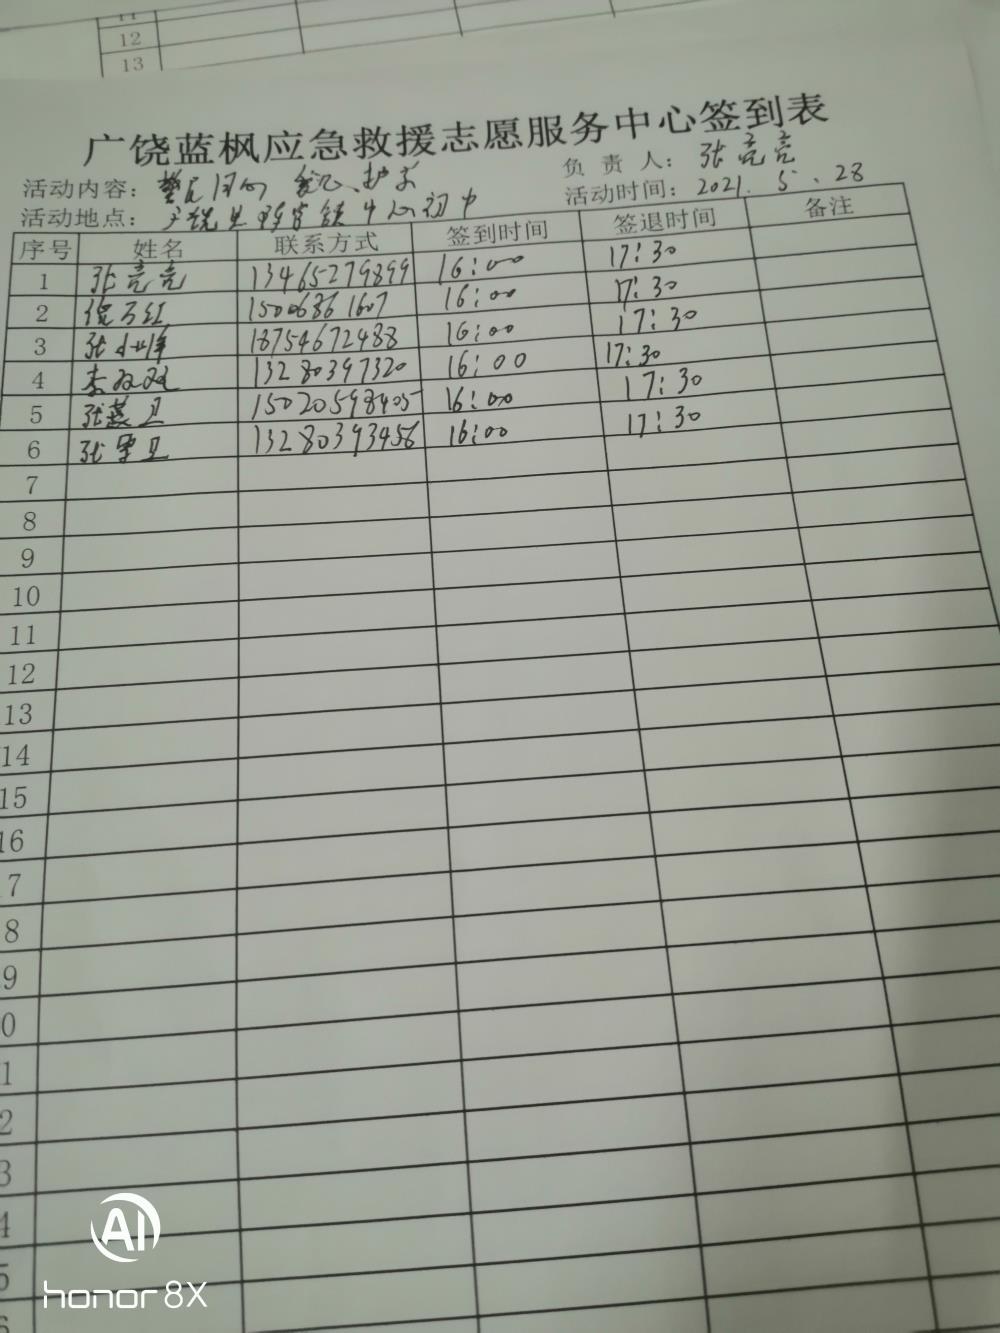 12
13
广饶蓝枫应急救援志愿服务中心签到表
活动内容： 警民同心 护学
负责人： 张亮亮
活动地点： 广饶县 镇中心初中
活动时间：2021.5.28
序号 姓名 联系方式 签到时间 签退时间 备注
1 张亮亮 13465279899 16:00 17:30
2 15006861607 16:00 17:30
3 张 18754672488 16:00 17:30
4 李双双 13280397320 16:00 17:30
5 张燕卫 15020598405 16:00 17:30
6 张军卫 13280393456 16:00 17:30
7
8
9
10
11
12
13
14
15
16
7
8
9
0
1
2
3
4
5
6
AI
honor 8X